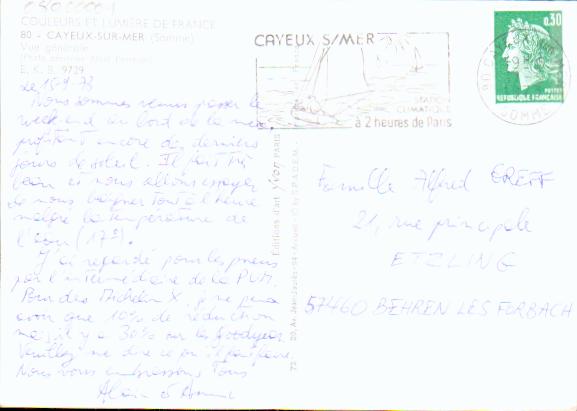 COULEURS ET LUMIÈRE DE FRANCE
80 - CAYEUX-SUR-MER (Somme)
Vue générale
E. K. B. 9729
Le 15-9-73
Nous sommes venus passer le
week-end au bord de la mer,
profitant encore des derniers
jours de soleil. Il fait très
beau et nous allons essayer
de nous baigner tout à l'heure
malgré la température de
l'eau (17°).
J'ai regardé pour les pneus
par l'intermédiaire de la
Pour des Michelin X, je ne peux
avoir que 10% de réduction
mais il y a 30% sur les Goodyear
Veuillez me dire ce qu'il faut faire.
Nous vous embrassons tous
Alain et
Editions d'art yvon PARIS
CAYEUX S/MER
STATION
CLIMATIQUE
à 2 heures de Paris
80 CAYEUX
SOMME
0,30
POSTES
REPUBLIQUE FRANÇAISE
Famille Alfred GREFF
21, rue principale
ETZLING
57460 BEHREN LES FORBACH